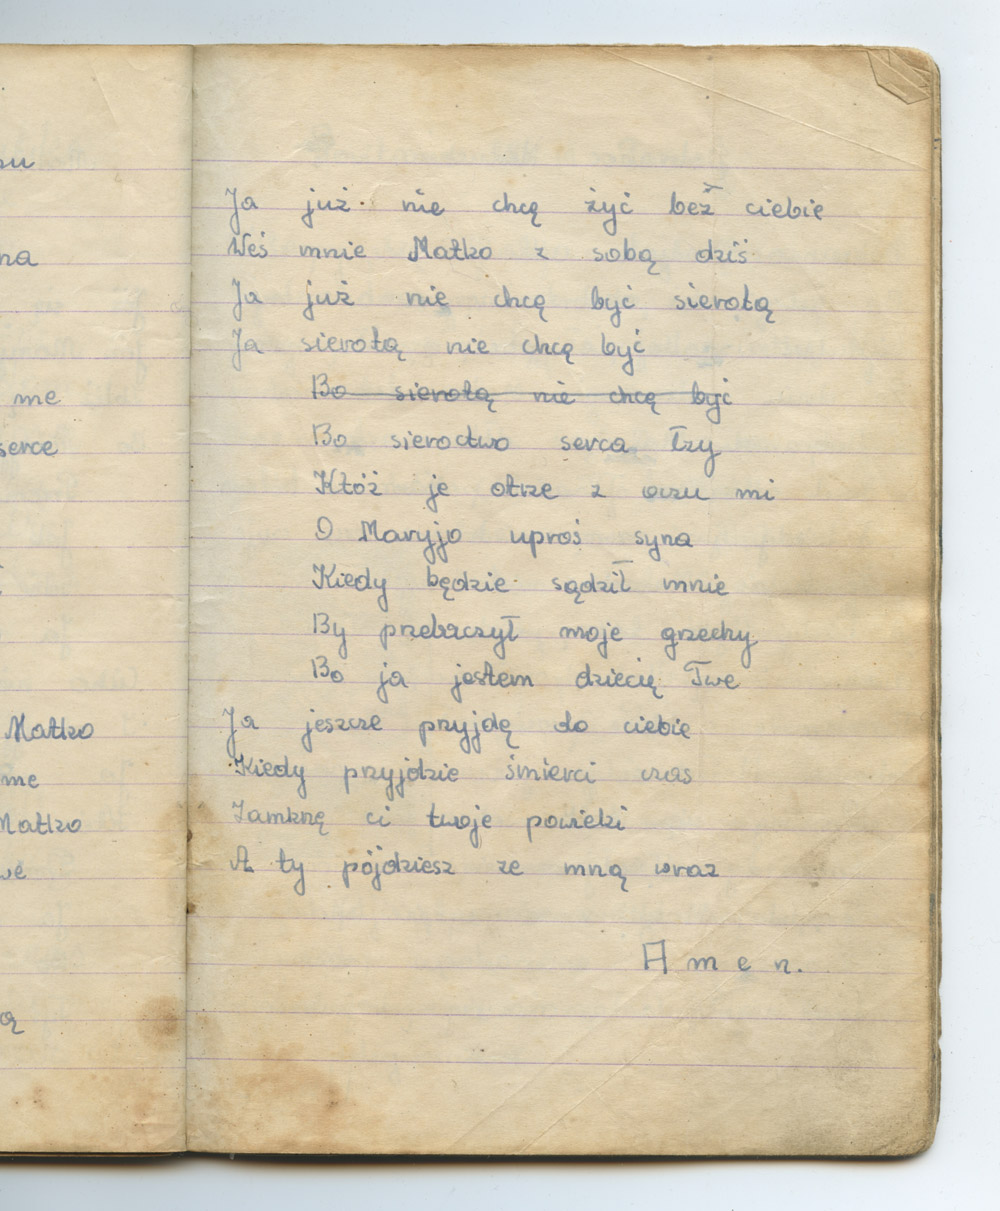 zu
na
me
serce
Matko
me
Matko
we
ą
Ja już nie chcę żyć beż ciebie
Weś mnie Matko z sobą dziś
Ja już nie chcę być sierotą
Ja sierotą nie chcę być
Bo sierotą nie chcę być
Bo sieroctwo serca łzy
Któż je otrze z oczu mi
O Maryjo uproś syna
Kiedy będzie sądził mnie
By przebaczył moje grzechy
Bo ja jestem dziecię Twe
Ja jeszcze przyjdę do ciebie
Kiedy przyjdzie śmierci czas
Zamknę ci twoje powieki
A ty pójdziesz ze mną wraz
Amen.